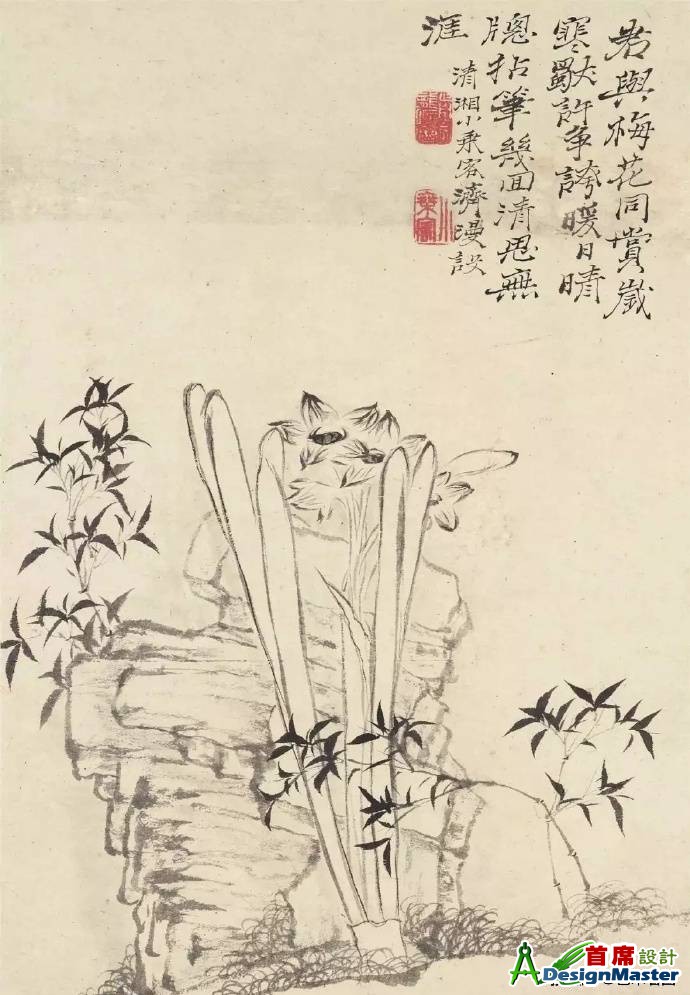 君與梅花同賞歲
寒獸許爭誇暖日晴
牕拈筆幾回清思無
涯
清湘小乘客濟漫設
小乘客
首席設計
DesignMaster